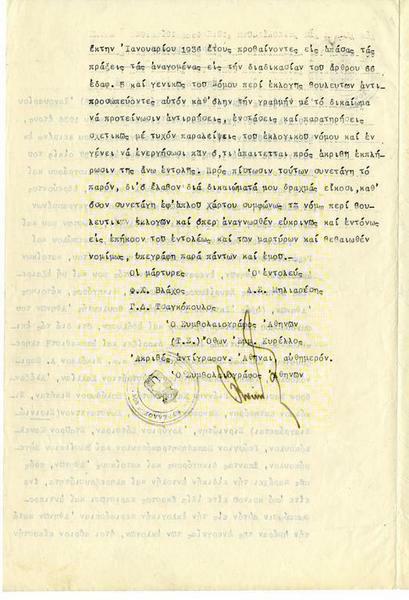 ἕκτην Ἰανουαρίου 1936 ἔτους προβαίνοντες εἰς ἁπάσας τάς
πράξεις τάς ἀναγομένας εἰς τήν διαδικασίαν τοῦ ἄρθρου 66
ἐδαφ. 5 καί γενικῶς τοῦ Νόμου περί ἐκλογῆς βουλευτῶν ἀντι-
προσωπεύοντες αὐτόν καθ'ὅλην τήν γραμμήν μέ τό δικαίωμα
νά προτείνωσιν ἀντιρρήσεις, ἐνστάσεις καί παρατηρήσεις
σχετικῶς μέ τυχόν παραλείψεις τοῦ ἐκλογικοῦ νόμου καί ἐν
γένει νά ἐνεργήσωσι πᾶν ὅ,τι ἀπαιτεται πρός ἀκριβῆ ἐκπλή-
ρωσιν τῆς ἄνω ἐντολῆς. Πρός πίστωσιν τούτων συνετάγη τό
παρόν, δι'ὅ ἔλαβον διά δικαιώματά μου δραχμάς εἴκοσι, καθ'
ὅσον συνετάγη ἐφ'ἁπλοῦ χάρτου συμφώνως τῷ νόμῳ περί βου-
λευτικῶν ἐκλογῶν καί ὅπερ ἀναγνωσθέν εὐκρινῶς καί ἐντόνως
εἰς ἐπήκοον τοῦ ἐντολέως καί τῶν μαρτύρων καί βεβαιωθέν
νομίμως, ὑπεγράφη παρά πάντων καί ἐμοῦ.-
Οἱ μάρτυρες Ὁ ἐντολεύς
Φ.Χ. Βλάχος Α.Σ. Μπλιαρέσης
Γ.Δ. Τσαγκόπουλος
Ὁ Συμβολαιογράφος Ἀθηνῶν
(Τ.Σ.) Ὄθων Ἐμμ. Κυρέλλος
Ἀκριβές ἀντίγραφον. Ἀθῆναι αὐθημερόν.
Ὁ Συμβολαιογράφος Ἀθηνῶν